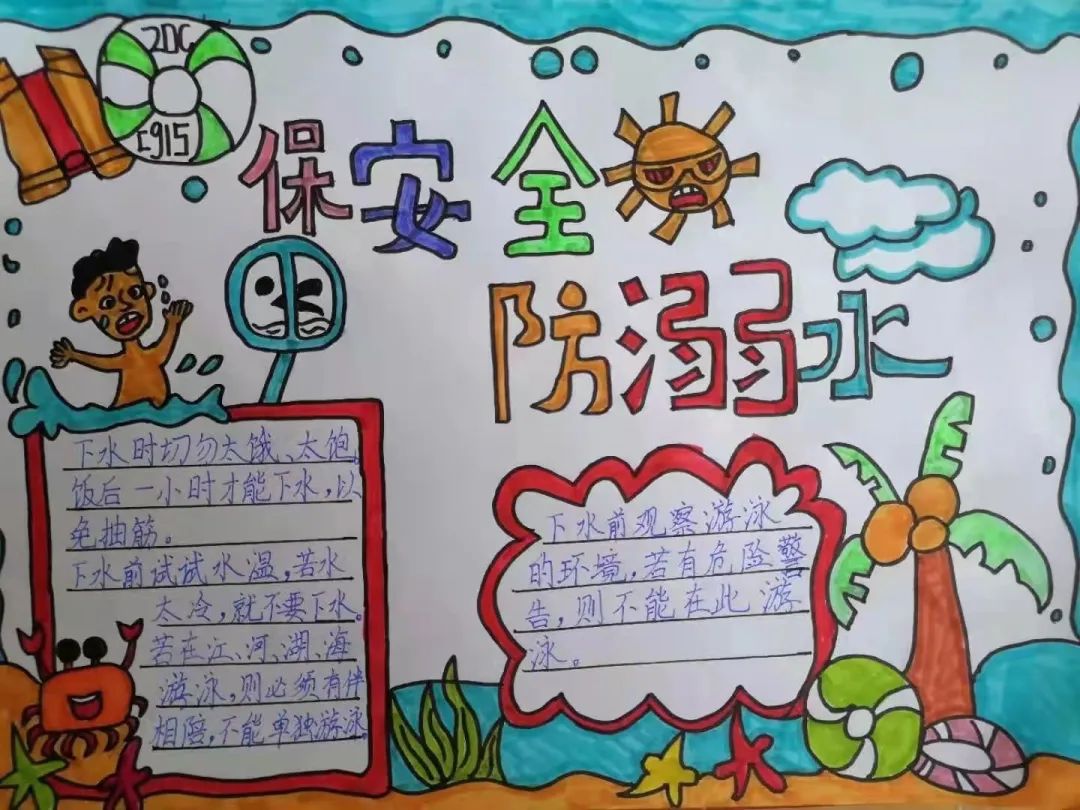 2DC
C915
保安全
防溺水
下水时切勿太饿、太饱。
饭后一小时才能下水，以
免抽筋。
下水前试试水温，若水
太冷，就不要下水。
若在江、河、湖、海
游泳，则必须有伴
相陪，不能单独游泳。
下水前观察游泳
的环境，若有危险警
告，则不能在此游
泳。